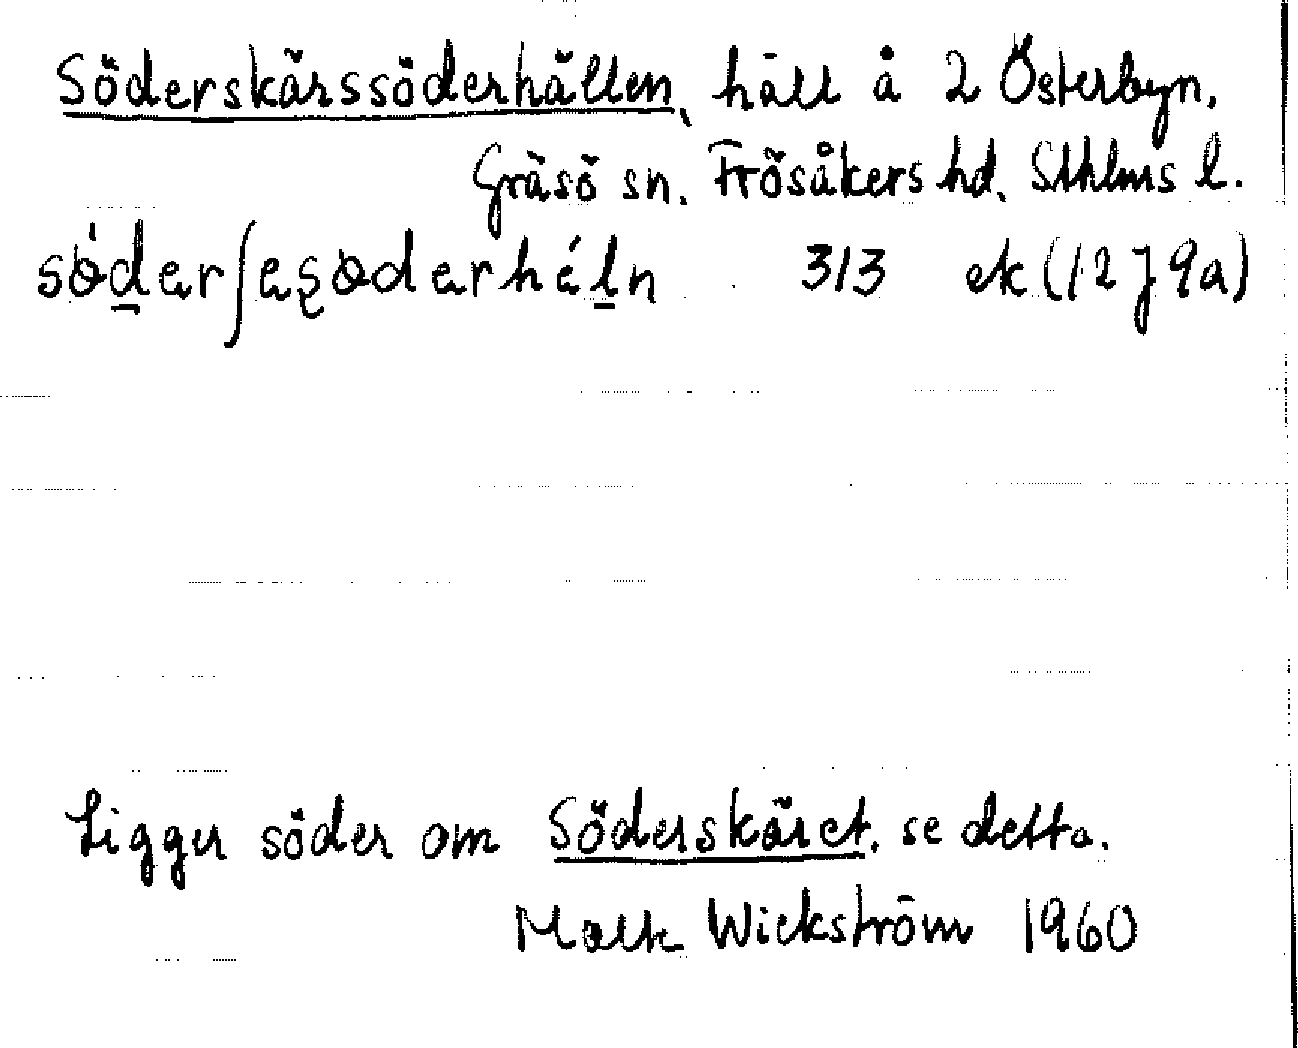 Söderskärssöderhällen, häll å 2 Österbyn,
Gräsö sn. Frösåkers hd. Sthlms l.
313 ek (12 J 9a)
Ligger söder om Söderskäret, se detta.
Wickström 1960